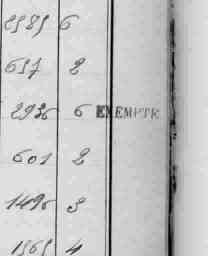 2989 6
697 2
2936 6 EXEMPTE
601 2
1496 3
1969 4